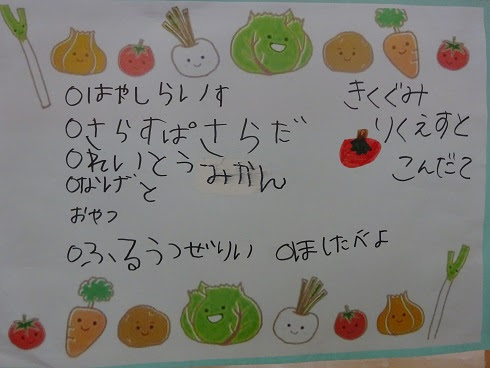 きくぐみ
りくえすと
こんだて
〇はやしらいす
〇さらすぱさらだ
〇れいとうみかん
〇なげと
おやつ
〇ふるうつぜりい 〇ほしたべよ